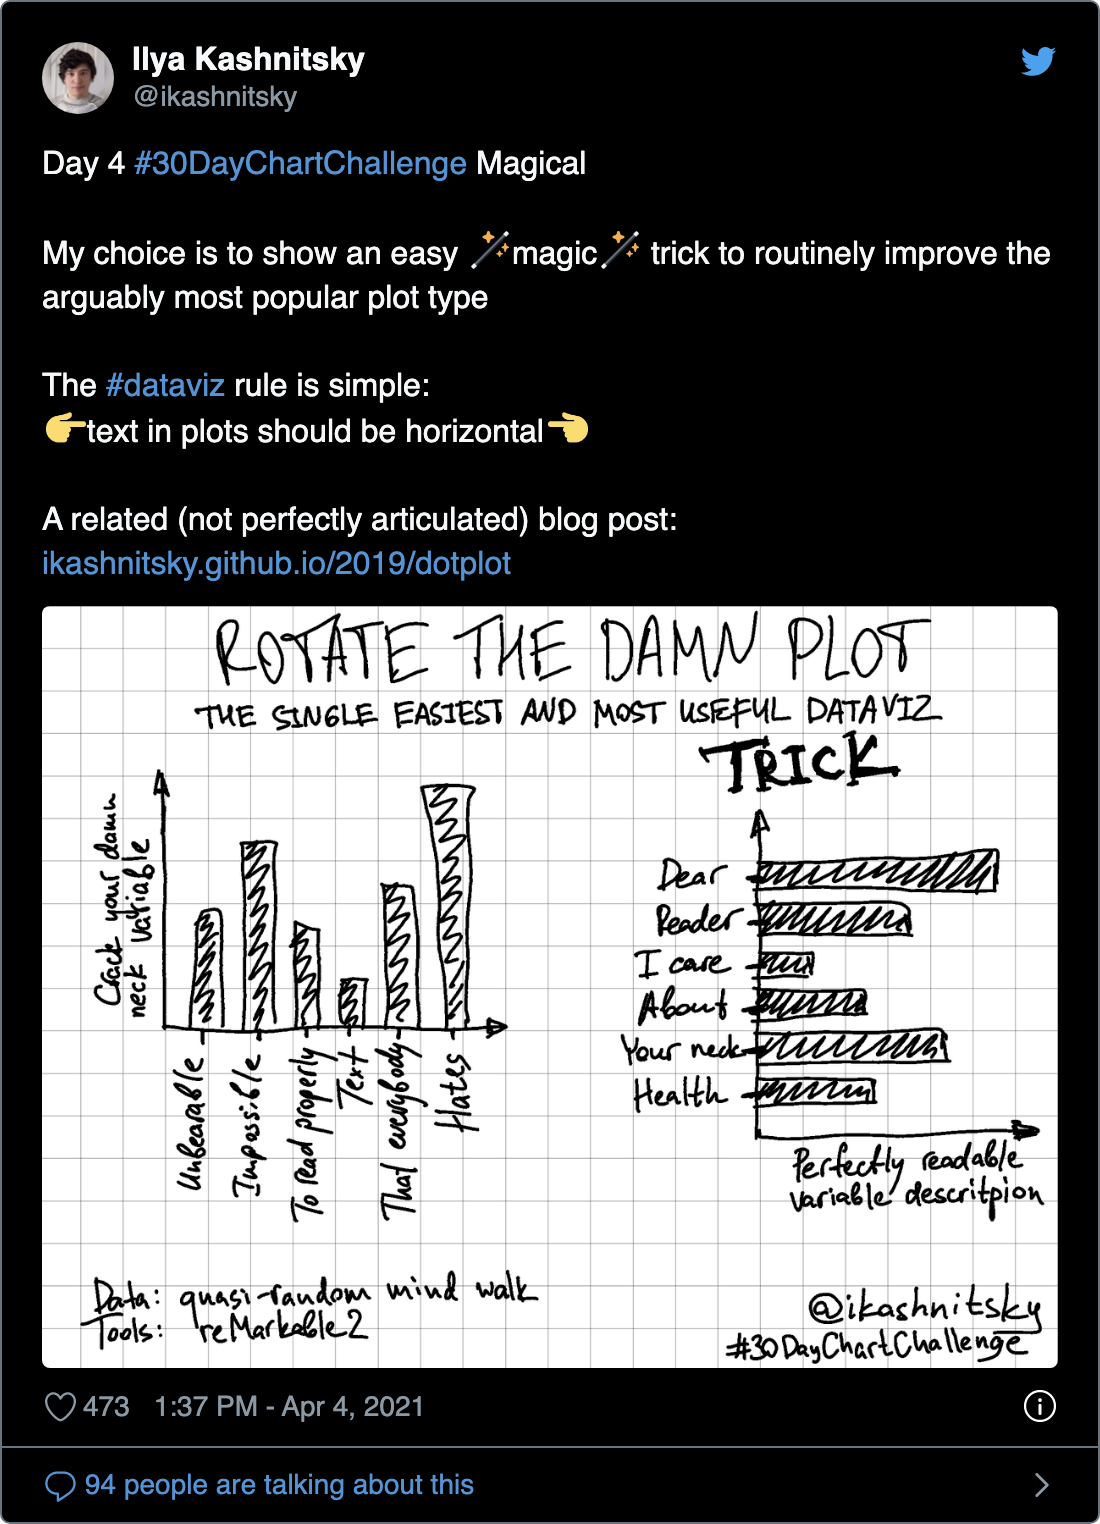 Ilya Kashnitsky
@ikashnitsky
Day 4 #30DayChartChallenge Magical
My choice is to show an easy 🪄magic🪄 trick to routinely improve the
arguably most popular plot type
The #dataviz rule is simple:
👉text in plots should be horizontal👈
A related (not perfectly articulated) blog post:
ikashnitsky.github.io/2019/dotplot
ROTATE THE DAMN PLOT
THE SINGLE EASIEST AND MOST USEFUL DATAVIZ
TRICK
Crack your damn
neck variable
Unbearable
Impossible
To read properly
Text
That everybody
Hates
Dear
Reader
I care
About
Your neck
Health
Perfectly readable
variable descritpion
Data: quasi-random mind walk
Tools: reMarkable2
@ikashnitsky
#30DayChartChallenge
473 1:37 PM - Apr 4, 2021
94 people are talking about this